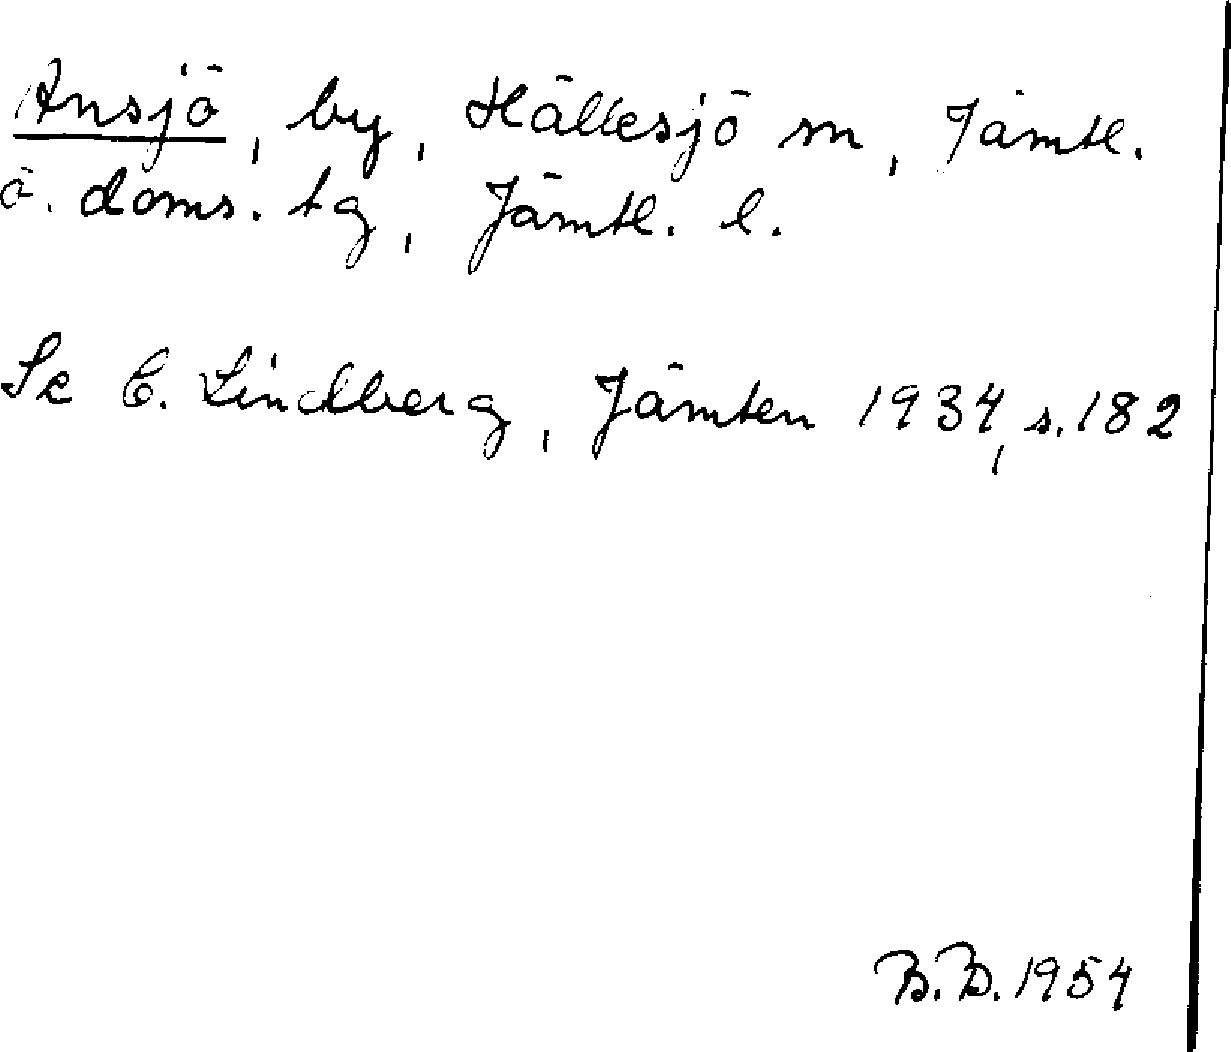 Ansjö, by, Hällesjö sn, Jämtl.
ö. doms. tg, Jämtl. l.
Se C. Lindberg, Jämten 1934, s. 182
B.B. 1954